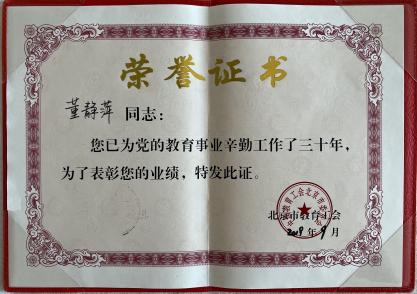 荣誉证书
董静萍 同志：
您已为党的教育事业辛勤工作了三十年，
为了表彰您的业绩，特发此证。
北京市教育工会
2009年9月